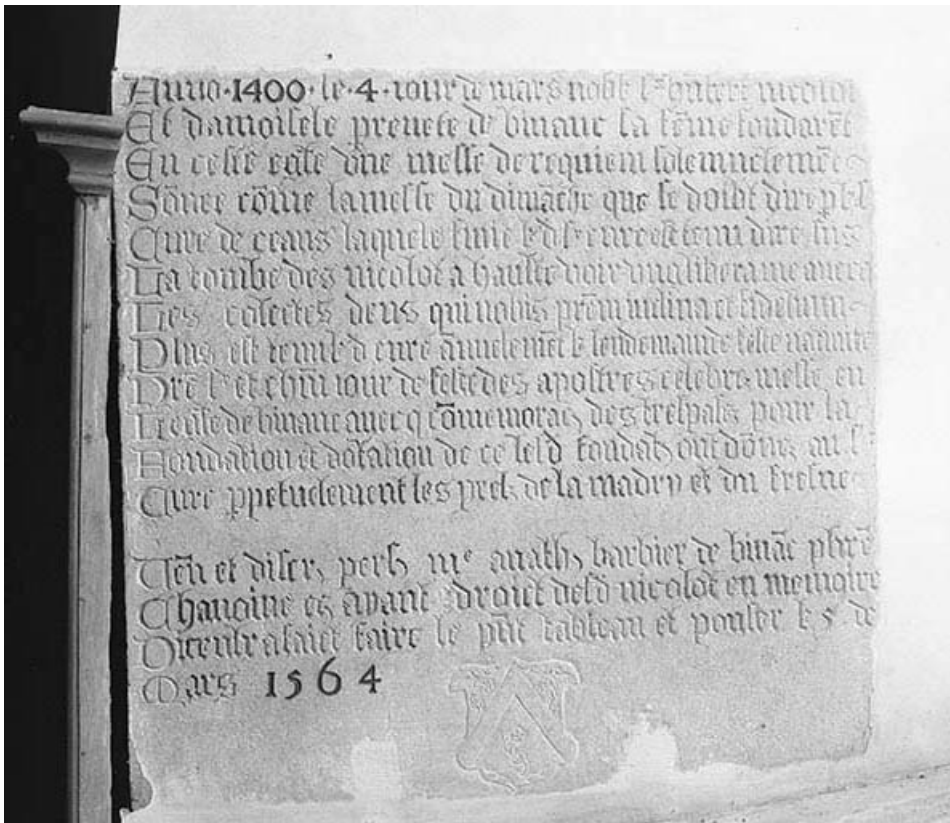 Anno · 1400 · le · 4 · iour de mars noble sr hubert nicolot
Et damoisele prevete de binanc sa fēme fondarēt
En ceste eglīe vne messe de requiem solemnelemēt
Sōnee cōme la messe du dimāche que se doibt dire p le sr
Cure de ceans laquele finie led sr cure est tenu dire sus
La tombe des nicolot a haulte voix
Les colectes deus qui nobis prēm et fidelium
Plus est tenu led cure ānuelemēt le lendemain de feste natiuite
Nre sr et chūn iour de feste des apostres celebre messe en
Leglīe de binanc auec q cōmemoraō des trespasses pour la
Fondation et dōtation de ce lesd fondat ont dōne au sr
Cure ppetuelement les prel de la madry et du fresne

Ven et discr pers me anath barbier de bināc pbrē
Chanoine et ayant droict desd nicolot en memoire
Diceulx a faict faire le pn̄t tableau et pouser le 5 de
Mars 1564